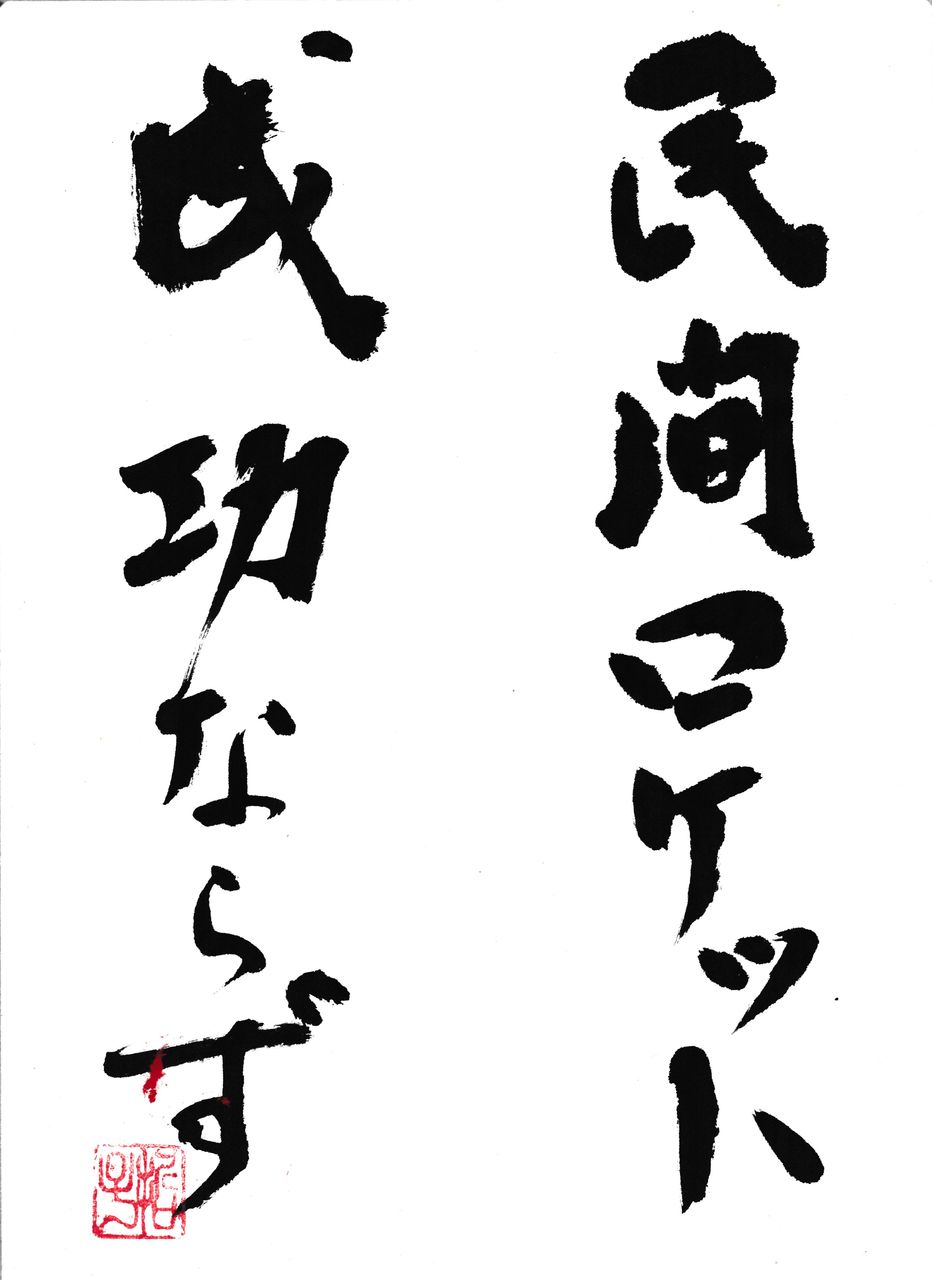 民間ロケット
成功ならず